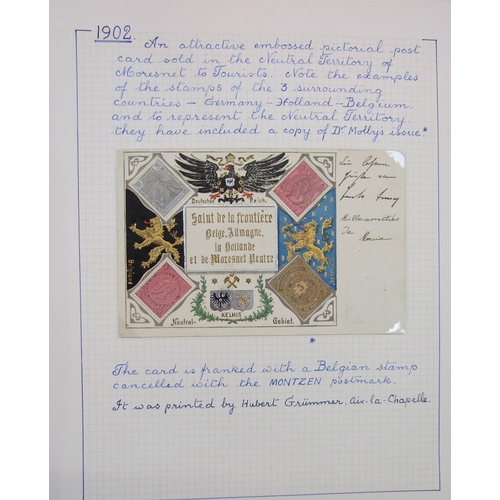 1902.
An attractive embossed pictorial post
card sold in the Neutral Territory of
Moresnet to Tourists. Note the examples
of the stamps of the 3 surrounding
countries – Germany – Holland – Belgium,
and to represent the Neutral Territory
they have included a copy of Dr Molly's issue.*
Deutsches Reich.
Salut de la frontière
Belge, Allmagne,
la Hollande
et de Moresnet Neutre
KELMIS
Neutral- Gebiet.
*
The card is franked with a Belgian stamp
cancelled with the MONTZEN postmark.
It was printed by Hubert Grümmer. Aix-la-Chapelle.